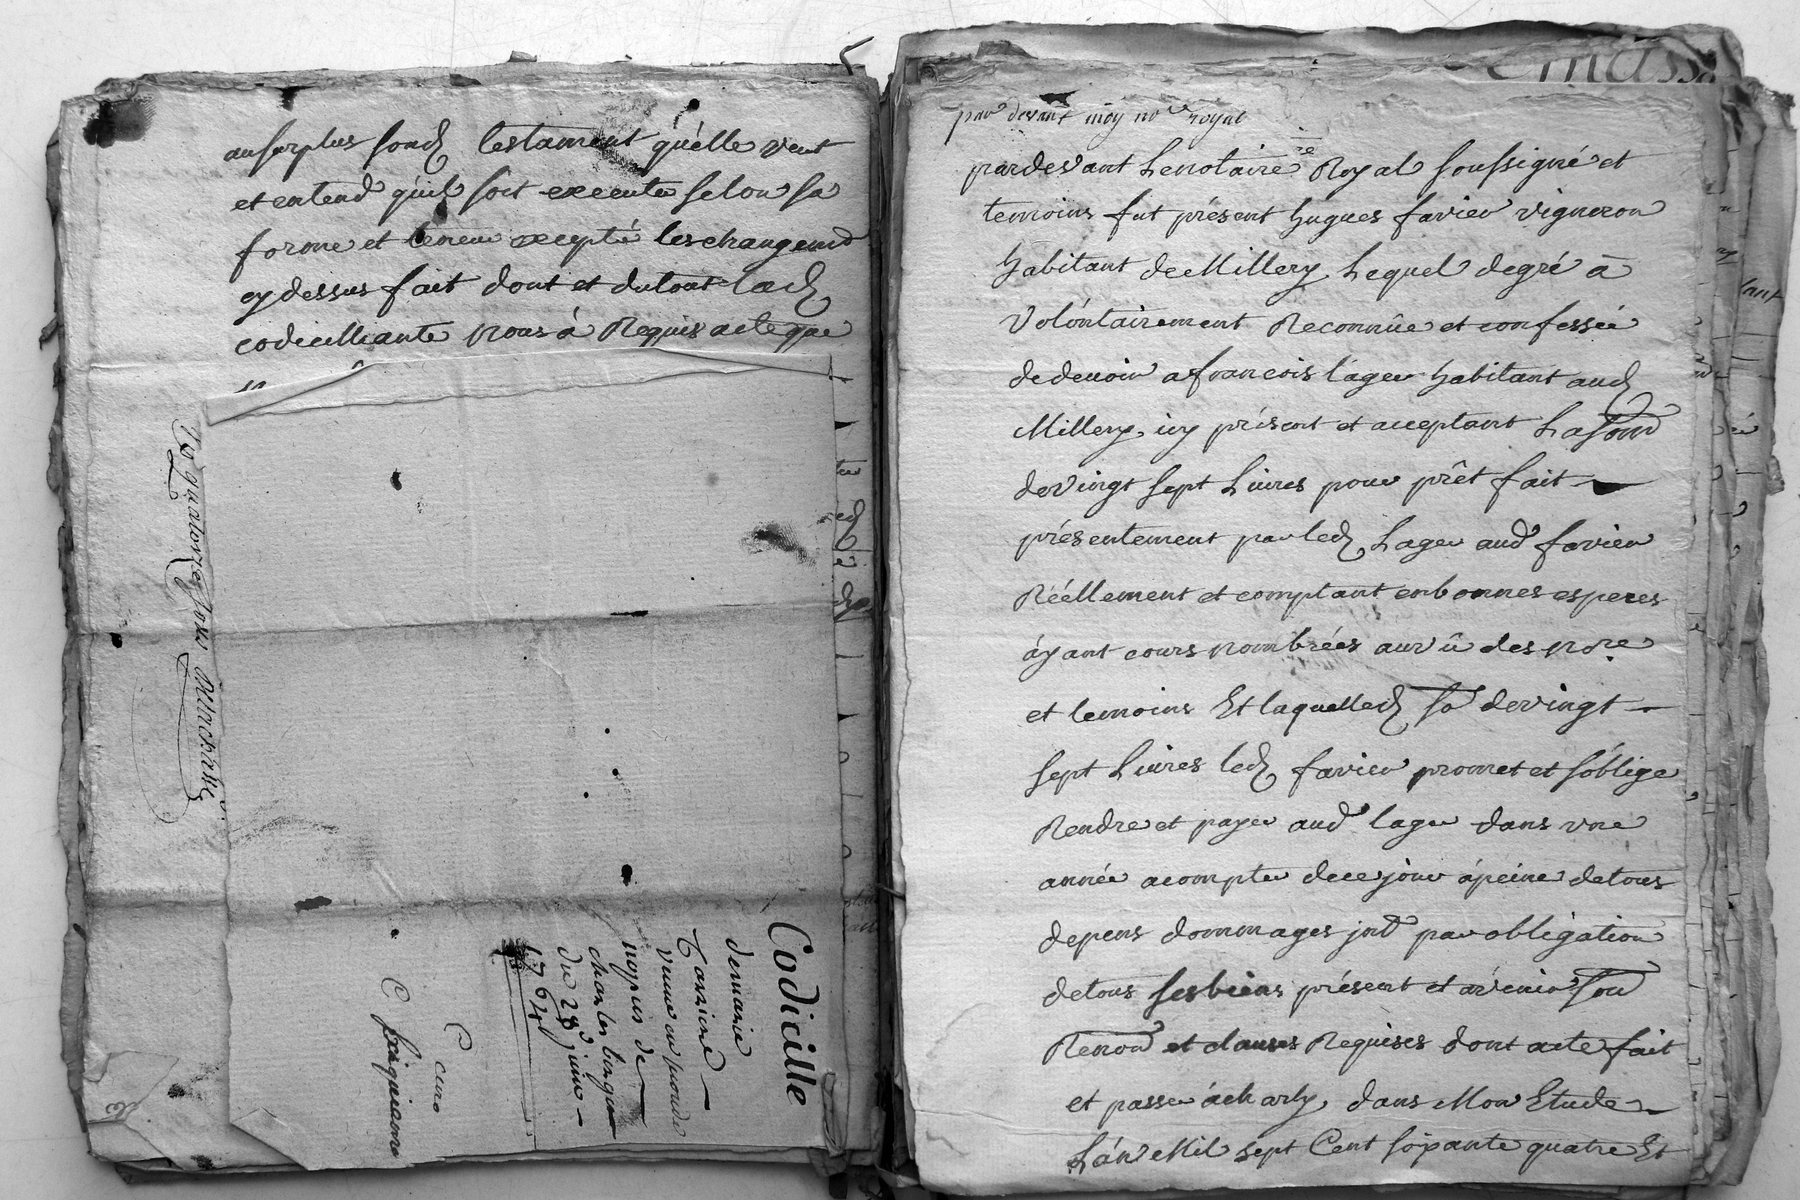 au surplus sond testament qu'élle veut
et entend quil soit executé selon sa
forme et teneur excepté les changemts
cy dessus fait dont et du tout lad
codicilliante nous á Requis acte que
Codicille
demarie
veuve en
mopiis de
charles
du 28 juin
1764
par devant moy nore royal
pardevant Lenotaire Royal soussigné et
temoins fut présent hugues favier vigneron
habitant de Millery Lequel degré à
volóntairement Reconnüe et confessée
dedevoir a francois lager habitant aud
Millery, icy présent et acceptant La some
devingt sept Livres pour prêt fait
présentement par led Lager aud favier
Réellement et comptant enbonnes especes
áyant cours nombrées au vû des nore
et temoins Et laquelled so devingt
sept Livres led favier promet et s'óblige
Rendre et payer aud lager dans une
année acompter decejour ápeine detous
depens dommages jnt par obligation
detous ses biens présent et avénir sou
Renon et clauses Requises dont acte fait
et passé ácharly, dans Mon Etude
L'án Mil sept Cent soixante quatre Et